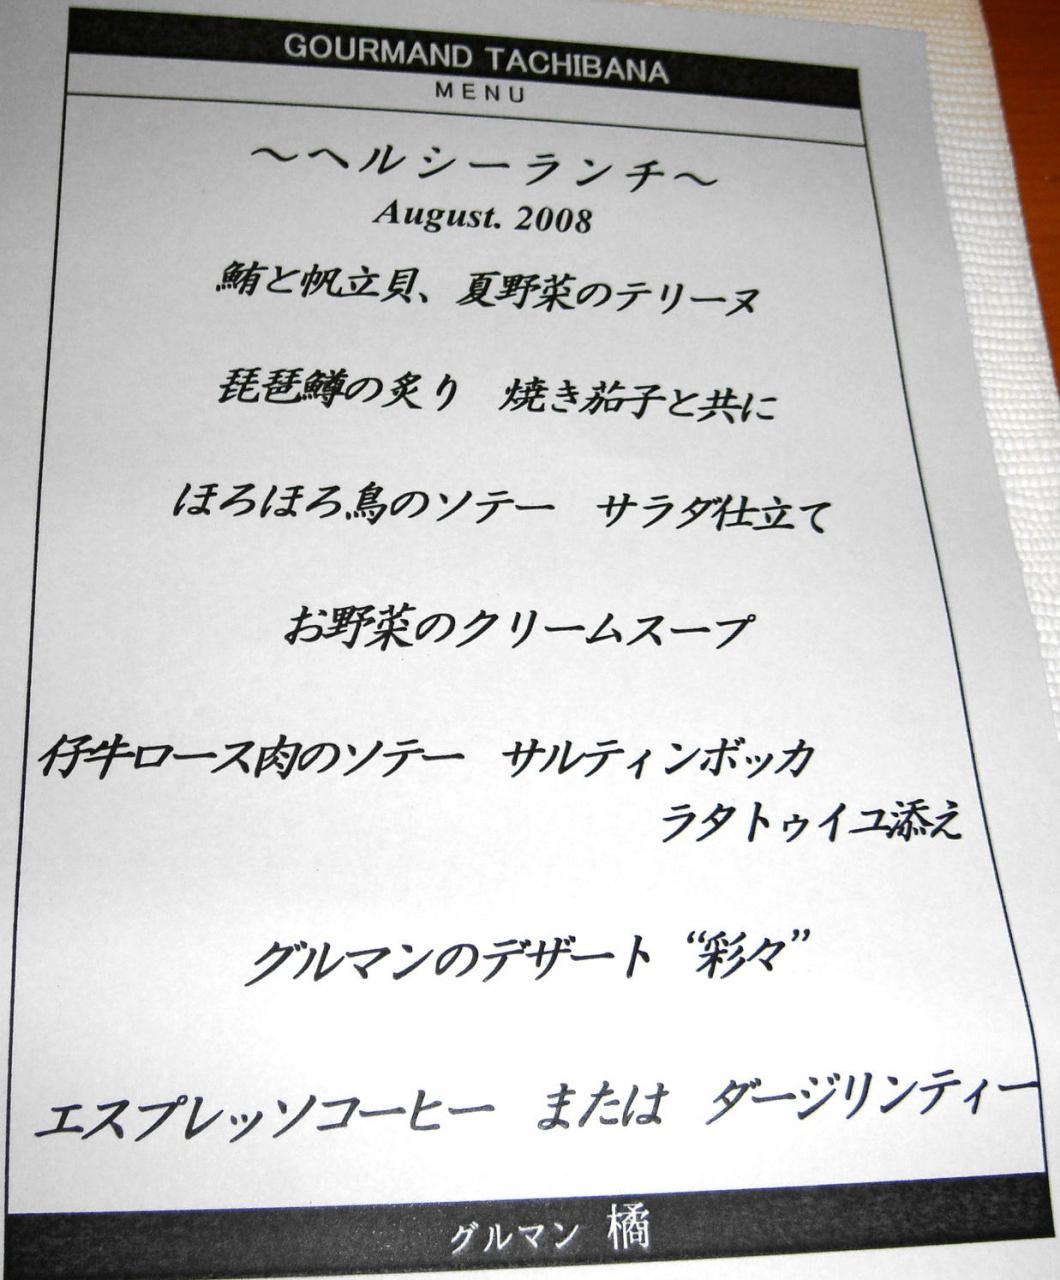 GOURMAND TACHIBANA
MENU
～ヘルシーランチ～
August. 2008
鮪と帆立貝、夏野菜のテリーヌ
琵琶鱒の炙り　焼き茄子と共に
ほろほろ鳥のソテー　サラダ仕立て
お野菜のクリームスープ
仔牛ロース肉のソテー　サルティンボッカ
ラタトゥイユ添え
グルマンのデザート “彩々”
エスプレッソコーヒー　または　ダージリンティー
グルマン 橘